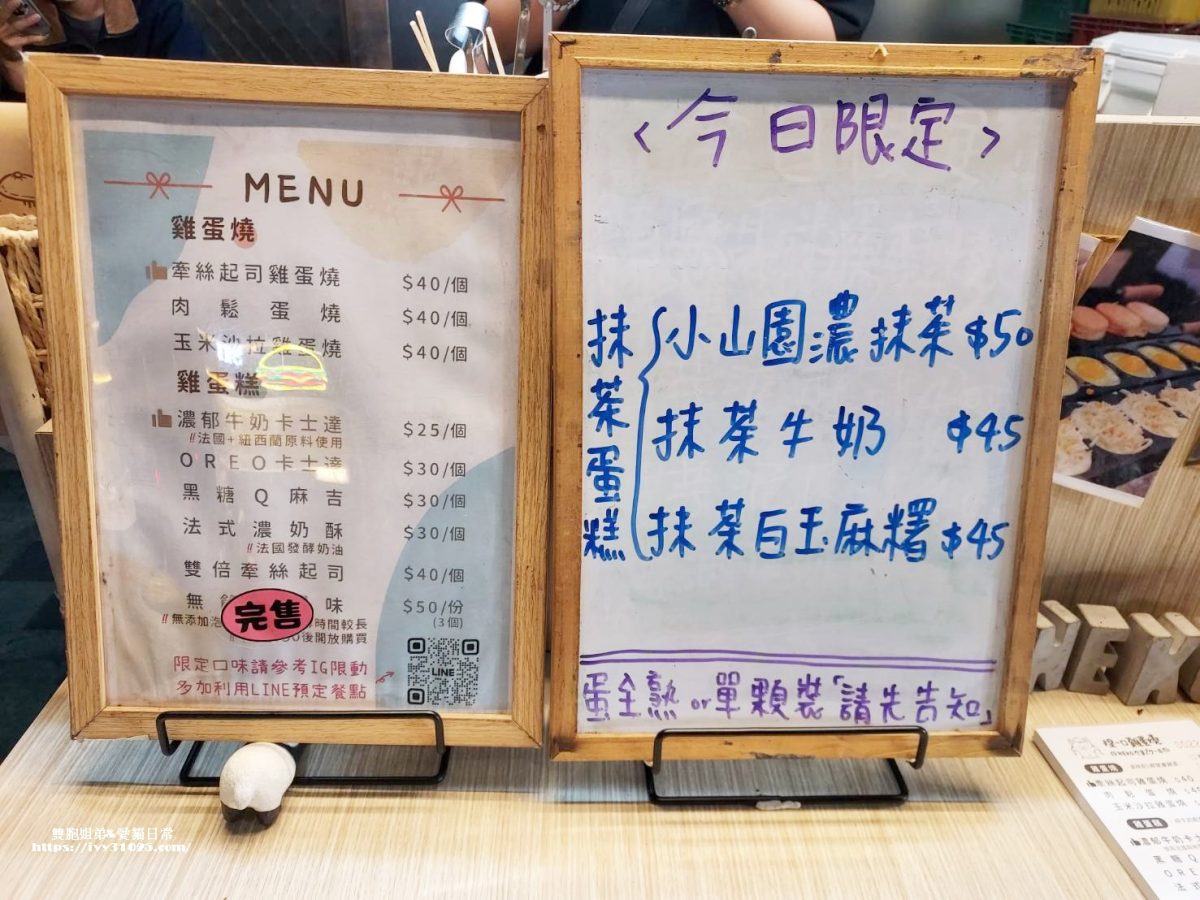 MENU
雞蛋燒
牽絲起司雞蛋燒 $40/個
肉鬆蛋燒 $40/個
玉米沙拉雞蛋燒 $40/個
雞蛋糕
濃郁牛奶卡士達 $25/個
!!法國+紐西蘭原料使用
OREO卡士達 $30/個
黑糖Q麻吉 $30/個
法式濃奶酥 $30/個
!!法國發酵奶油
雙倍牽絲起司 $40/個
無 味 $50/份
完售
(3個)
!!無添加泡 時間較長
後開放購買
限定口味請參考IG限動
多加利用LINE預定餐點
LINE
<今日限定>
抹茶蛋糕
小山園濃抹茶 $50
抹茶牛奶 $45
抹茶白玉麻糬 $45
蛋全熟or單顆裝「請先告知」
雞蛋燒
牽絲起司雞蛋燒 $40
肉鬆蛋燒
玉米沙拉雞蛋燒
雞蛋糕
濃郁牛奶卡士
黑糖Q
ORE
法式
雙胞姐弟&愛貓日常
https://ivy31025.com/